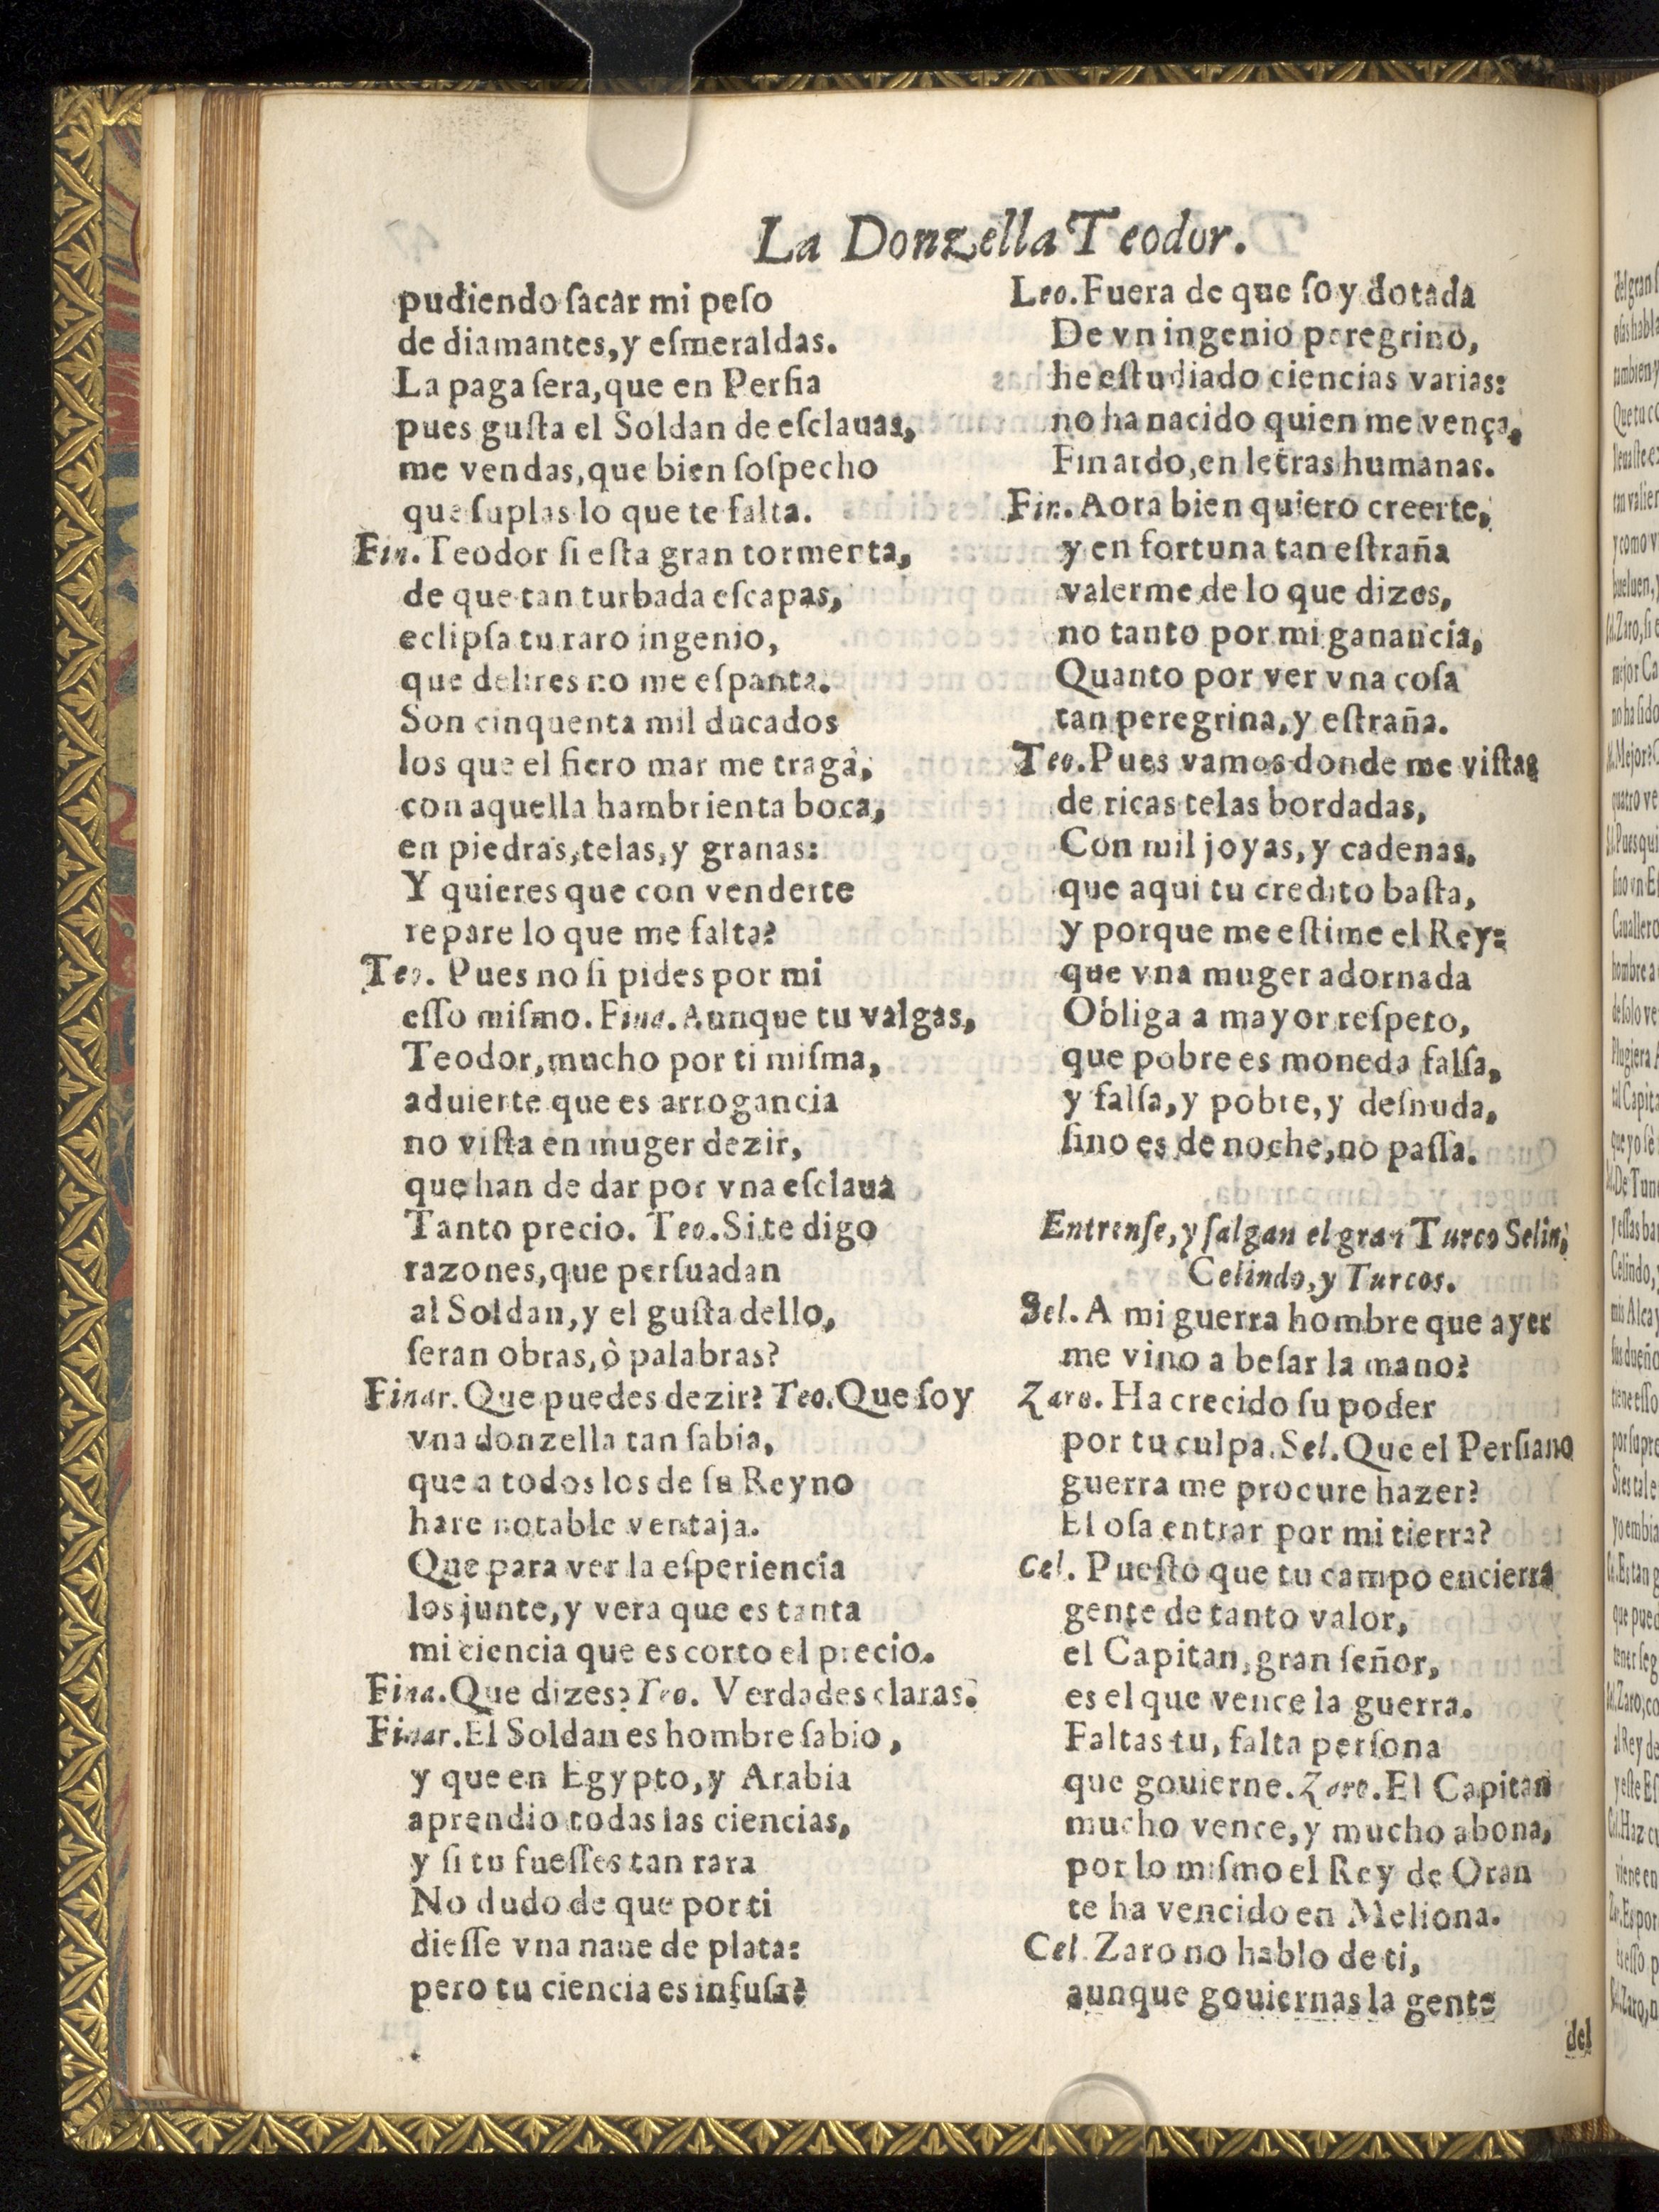 La Donzella Teodor.
pudiendo ſacar mi peſo
de diamantes, y eſmeraldas.
La paga ſera, que en Perſia
pues guſta el Soldan de eſclauas,
me vendas, que bien ſoſpecho
que ſuplas lo que te falta.
Fin. Teodor ſi eſta gran tormenta,
de que tan turbada eſcapas,
eclipſa tu raro ingenio,
que delires no me eſpanta.
Son cinquenta mil ducados
los que el fiero mar me traga,
con aquella hambrienta boca,
en piedras, telas, y granas:
Y quieres que con venderte
repare lo que me falta?
Teo. Pues no ſi pides por mi
eſſo miſmo. Fina. Aunque tu valgas,
Teodor, mucho por ti miſma,
aduierte que es arrogancia
no viſta en muger dezir,
que han de dar por vna eſclaua
Tanto precio. Teo. Si te digo
razones, que perſuadan
al Soldan, y el guſta dello,
ſeran obras, ò palabras?
Finar. Que puedes dezir? Teo. Que ſoy
vna donzella tan ſabia,
que a todos los de ſu Reyno
hare notable ventaja.
Que para ver la eſperiencia
los junte, y vera que es tanta
mi ciencia que es corto el precio.
Fina. Que dizes? Teo. Verdades claras.
Finar. El Soldan es hombre ſabio,
y que en Egypto, y Arabia
aprendio todas las ciencias,
y ſi tu fueſſes tan rara
No dudo de que por ti
dieſſe vna naue de plata:
pero tu ciencia es infuſa?
Leo. Fuera de que ſoy dotada
De vn ingenio peregrino,
he eſtudiado ciencias varias:
no ha nacido quien me vença,
Finardo, en letras humanas.
Fin. Aora bien quiero creerte,
y en fortuna tan eſtraña
valerme de lo que dizes,
no tanto por mi ganancia,
Quanto por ver vna coſa
tan peregrina, y eſtraña.
Teo. Pues vamos donde me viſtas
de ricas telas bordadas,
Con mil joyas, y cadenas,
que aqui tu credito baſta,
y porque me eſtime el Rey:
que vna muger adornada
Obliga a mayor reſpeto,
que pobre es moneda falſa,
y falſa, y pobre, y deſnuda,
ſino es de noche, no paſſa.
Entrenſe, y ſalgan el gran Turco Selin,
Celindo, y Turcos.
Sel. A mi guerra hombre que ayer
me vino a beſar la mano?
Zaro. Ha crecido ſu poder
por tu culpa. Sel. Que el Perſiano
guerra me procure hazer?
El oſa entrar por mi tierra?
Cel. Pueſto que tu campo encierra
gente de tanto valor,
el Capitan, gran ſeñor,
es el que vence la guerra.
Faltas tu, falta perſona
que gouierne. Zaro. El Capitan
mucho vence, y mucho abona,
por lo miſmo el Rey de Oran
te ha vencido en Meliona.
Cel. Zaro no hablo de ti,
aunque gouiernas la gente
del